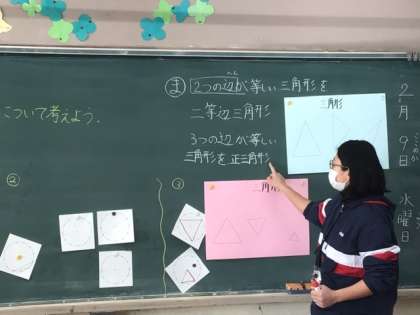 2月9日
ここのか
水曜日
について考えよう。
ま 2つの辺が等しい三角形を
二等辺三角形
3つの辺が等しい
三角形を正三角形
三角形
②
③
三角形